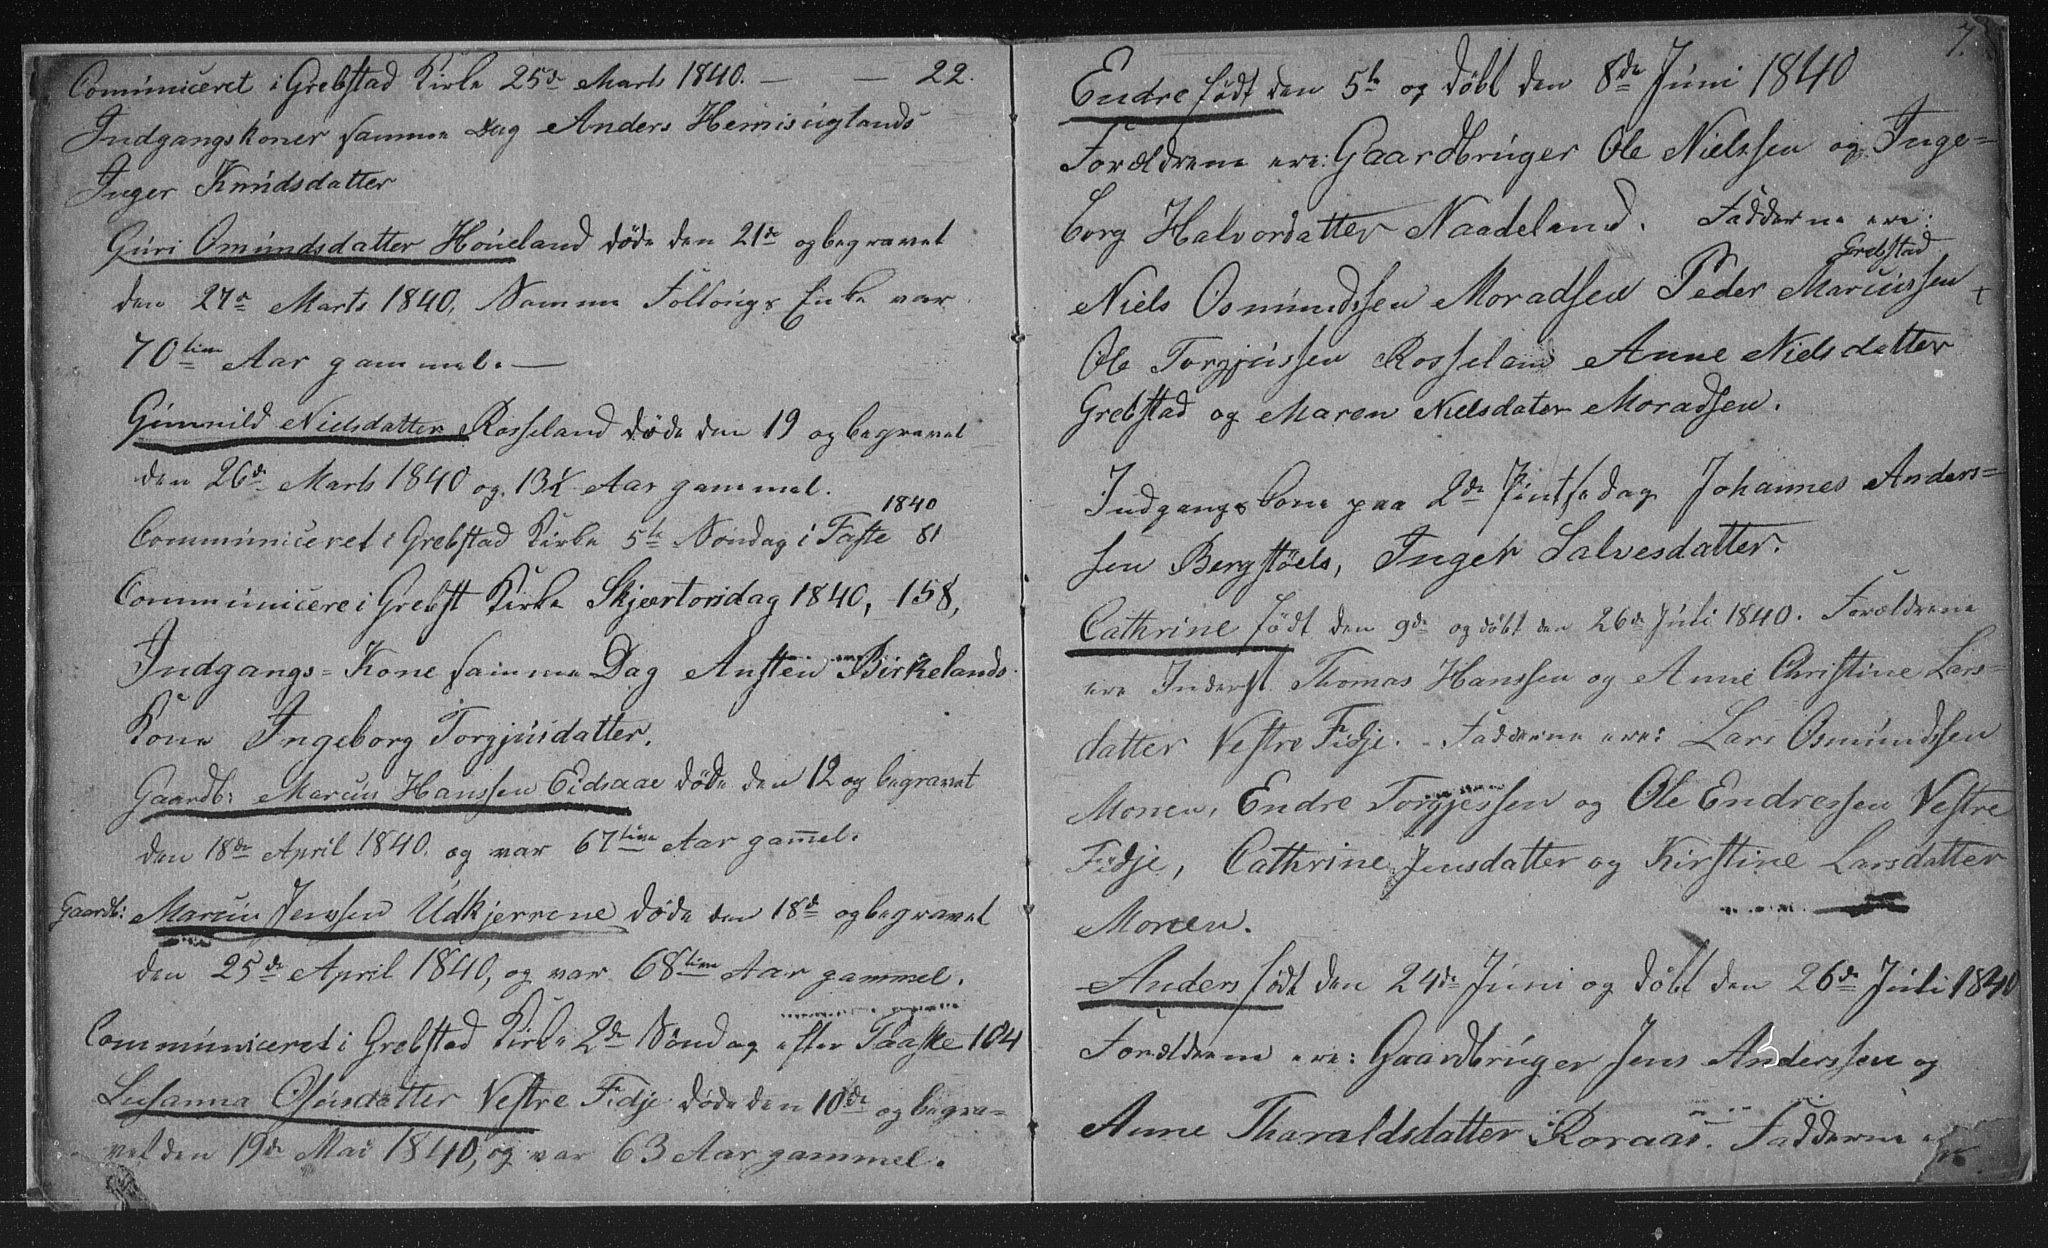 Communiceret i Grebstad Kirke 25de Marts 1840. — — 22.
Indgangskoner samme Dag Anders
Inger Knudsdatter
Guri Omundsdatter Høneland døde den 21de og begravet
den 27de Marts 1840, Samme Enke var
70tive Aar gammel. —
Gunnild Nielsdatter Rosseland døde den 19 og begravet
den 26de Marts 1840 og 13½ Aar gammel.
1840
Communiceret i Grebstad Kirke 5te Søndag i Faste 81
Communicere i Grebst Kirke Skjærtorsdag 1840, 158,
Indgangs=Kone samme Dag Austen Birkelands
Kone Ingeborg Torgjusdatter.
Gaardb: Marcus Hanssen Eidsaae døde den 12 og begravet
den 18de April 1840. og var 67tive Aar gammel.
Gaardb: Marcus Jenssen Udkjerrene døde den 18de og begravet
den 25de April 1840, og var 68tive Aar gammel.
Communiceret i Grebstad Kirke 2de Søndag efter Paaske 104
Susanna Osuisdatter Vestre Fidje døde den 10de og begra=
vet den 19de Mai 1840, og var 63 Aar gammel.
7.
Endre født den 5te og døbt den 8de Juni 1840
Forældrene ere: Gaardbruger Ole Nielssen og Inge=
borg Halvordatter Naadeland. Fadderne ere:
Grebstad
Niels Osmundssen Moradsen Peder Marcussen +
Ole Torgjussen Rosseland Anne Nielsdatter
Grebstad og Maren Nielsdater Moradsen.
Indgangskone paa 2de Pintsedag Johannes Anders=
sen Bergstøels, Inger Salvesdatter.
Cathrine født den 9de og døbt den 26de Juli 1840. Forældrene
ere Inderst Thomas Hanssen og Anne Christine Lars=
datter Vestre Fidje. - Fadderne ere: Lars Osmundssen
Monen, Endre Torgjessen og Ole Endressen Vestre
Fidje, Cathrine Jensdatter og Kirstine Larsdatter
Monen.
Anders født den 24de Juni og døbt den 26de Juli 1840
Forældrene ere: Gaardbruger Jens Anderssen og
Anne Tharaldsdatter Roraas. Fadderne